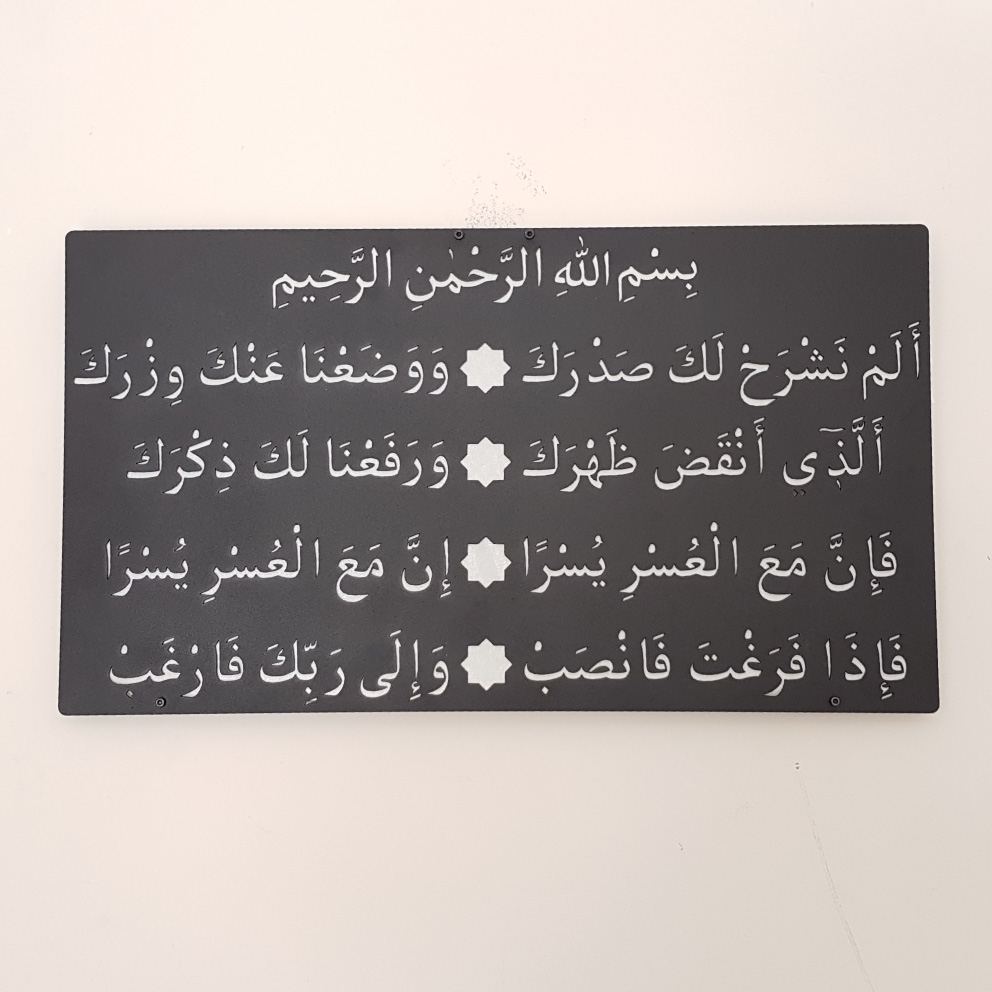 بِسْمِ اللهِ الرَّحْمٰنِ الرَّحِيمِ
أَلَمْ نَشْرَحْ لَكَ صَدْرَكَ ۞ وَوَضَعْنَا عَنْكَ وِزْرَكَ
أَلَّذِۤي أَنْقَضَ ظَهْرَكَ ۞ وَرَفَعْنَا لَكَ ذِكْرَكَ
فَإِنَّ مَعَ الْعُسْرِ يُسْرًا ۞ إِنَّ مَعَ الْعُسْرِ يُسْرًا
فَإِذَا فَرَغْتَ فَانْصَبْ ۞ وَإِلَى رَبِّكَ فَارْغَبْ